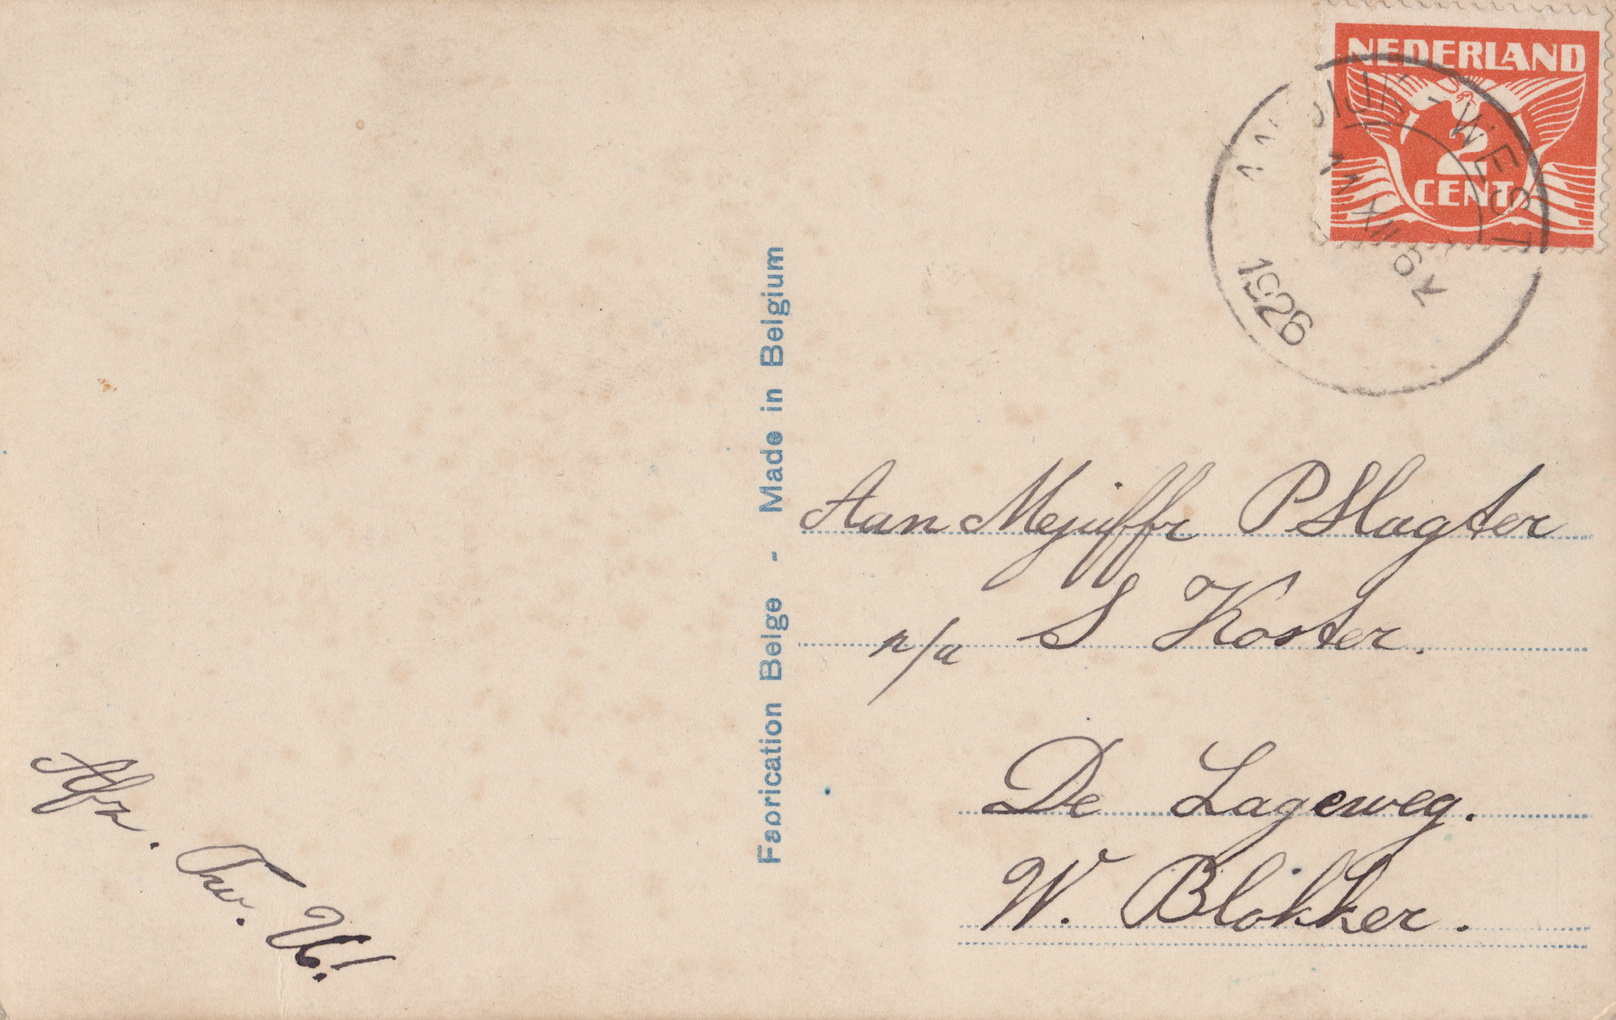 NEDERLAND
2
CENT
-WEST
11 XII 6N
1926
Fabrication Belge - Made in Belgium
Aan Mejuffr P Slagter
p/a S Koster.
De Lageweg.
W. Blokker.
Afz. Tw. V!